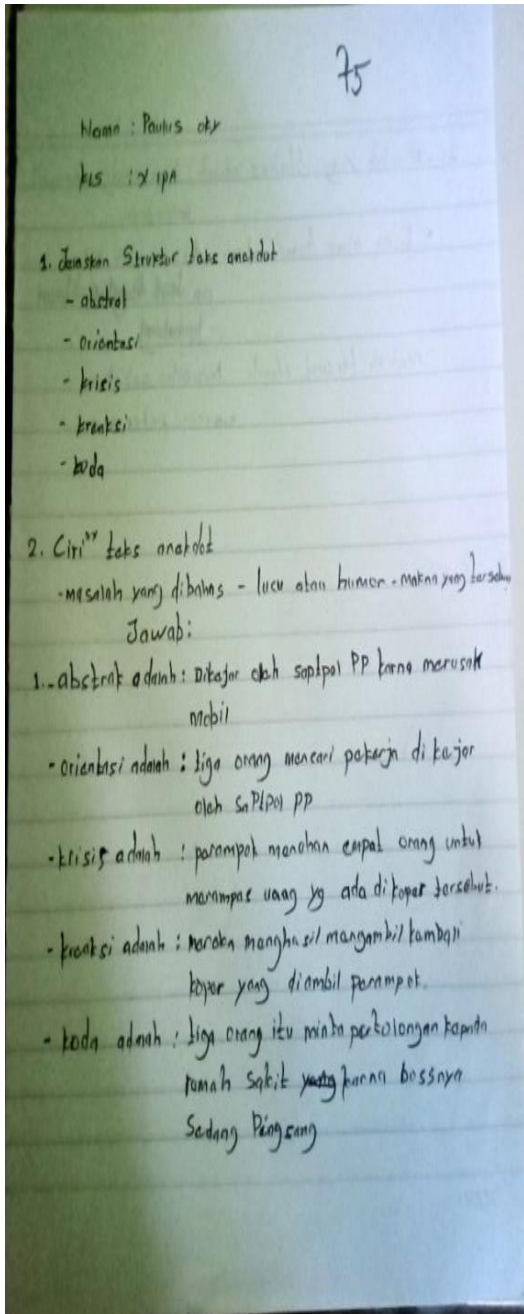 75
Nama : Paulus oky
kls : X IPA
1. Jelaskan Struktur taks anekdot
- abstrak
- orientasi
- krisis
- kreaksi
- koda
2. Ciri" taks anekdot
- masalah yang dibahas - lucu atau humor - makna yang
Jawab:
1. - abstrak adalah : Dikajar oleh saptpol PP karna merusak
mobil
- orientasi adalah : tiga orang mencari pekerja di kejar
oleh SaPlPol PP
- krisis adalah : perampok menahan empat orang untuk
merampas uang yg ada di koper tersebut.
- kreaksi adalah : mereka manghasil mangambil kambali
koper yang diambil perampok.
- koda adalah : tiga orang itu minta pertolongan kapada
rumah sakit karna bossnya
Sedang Pingsang